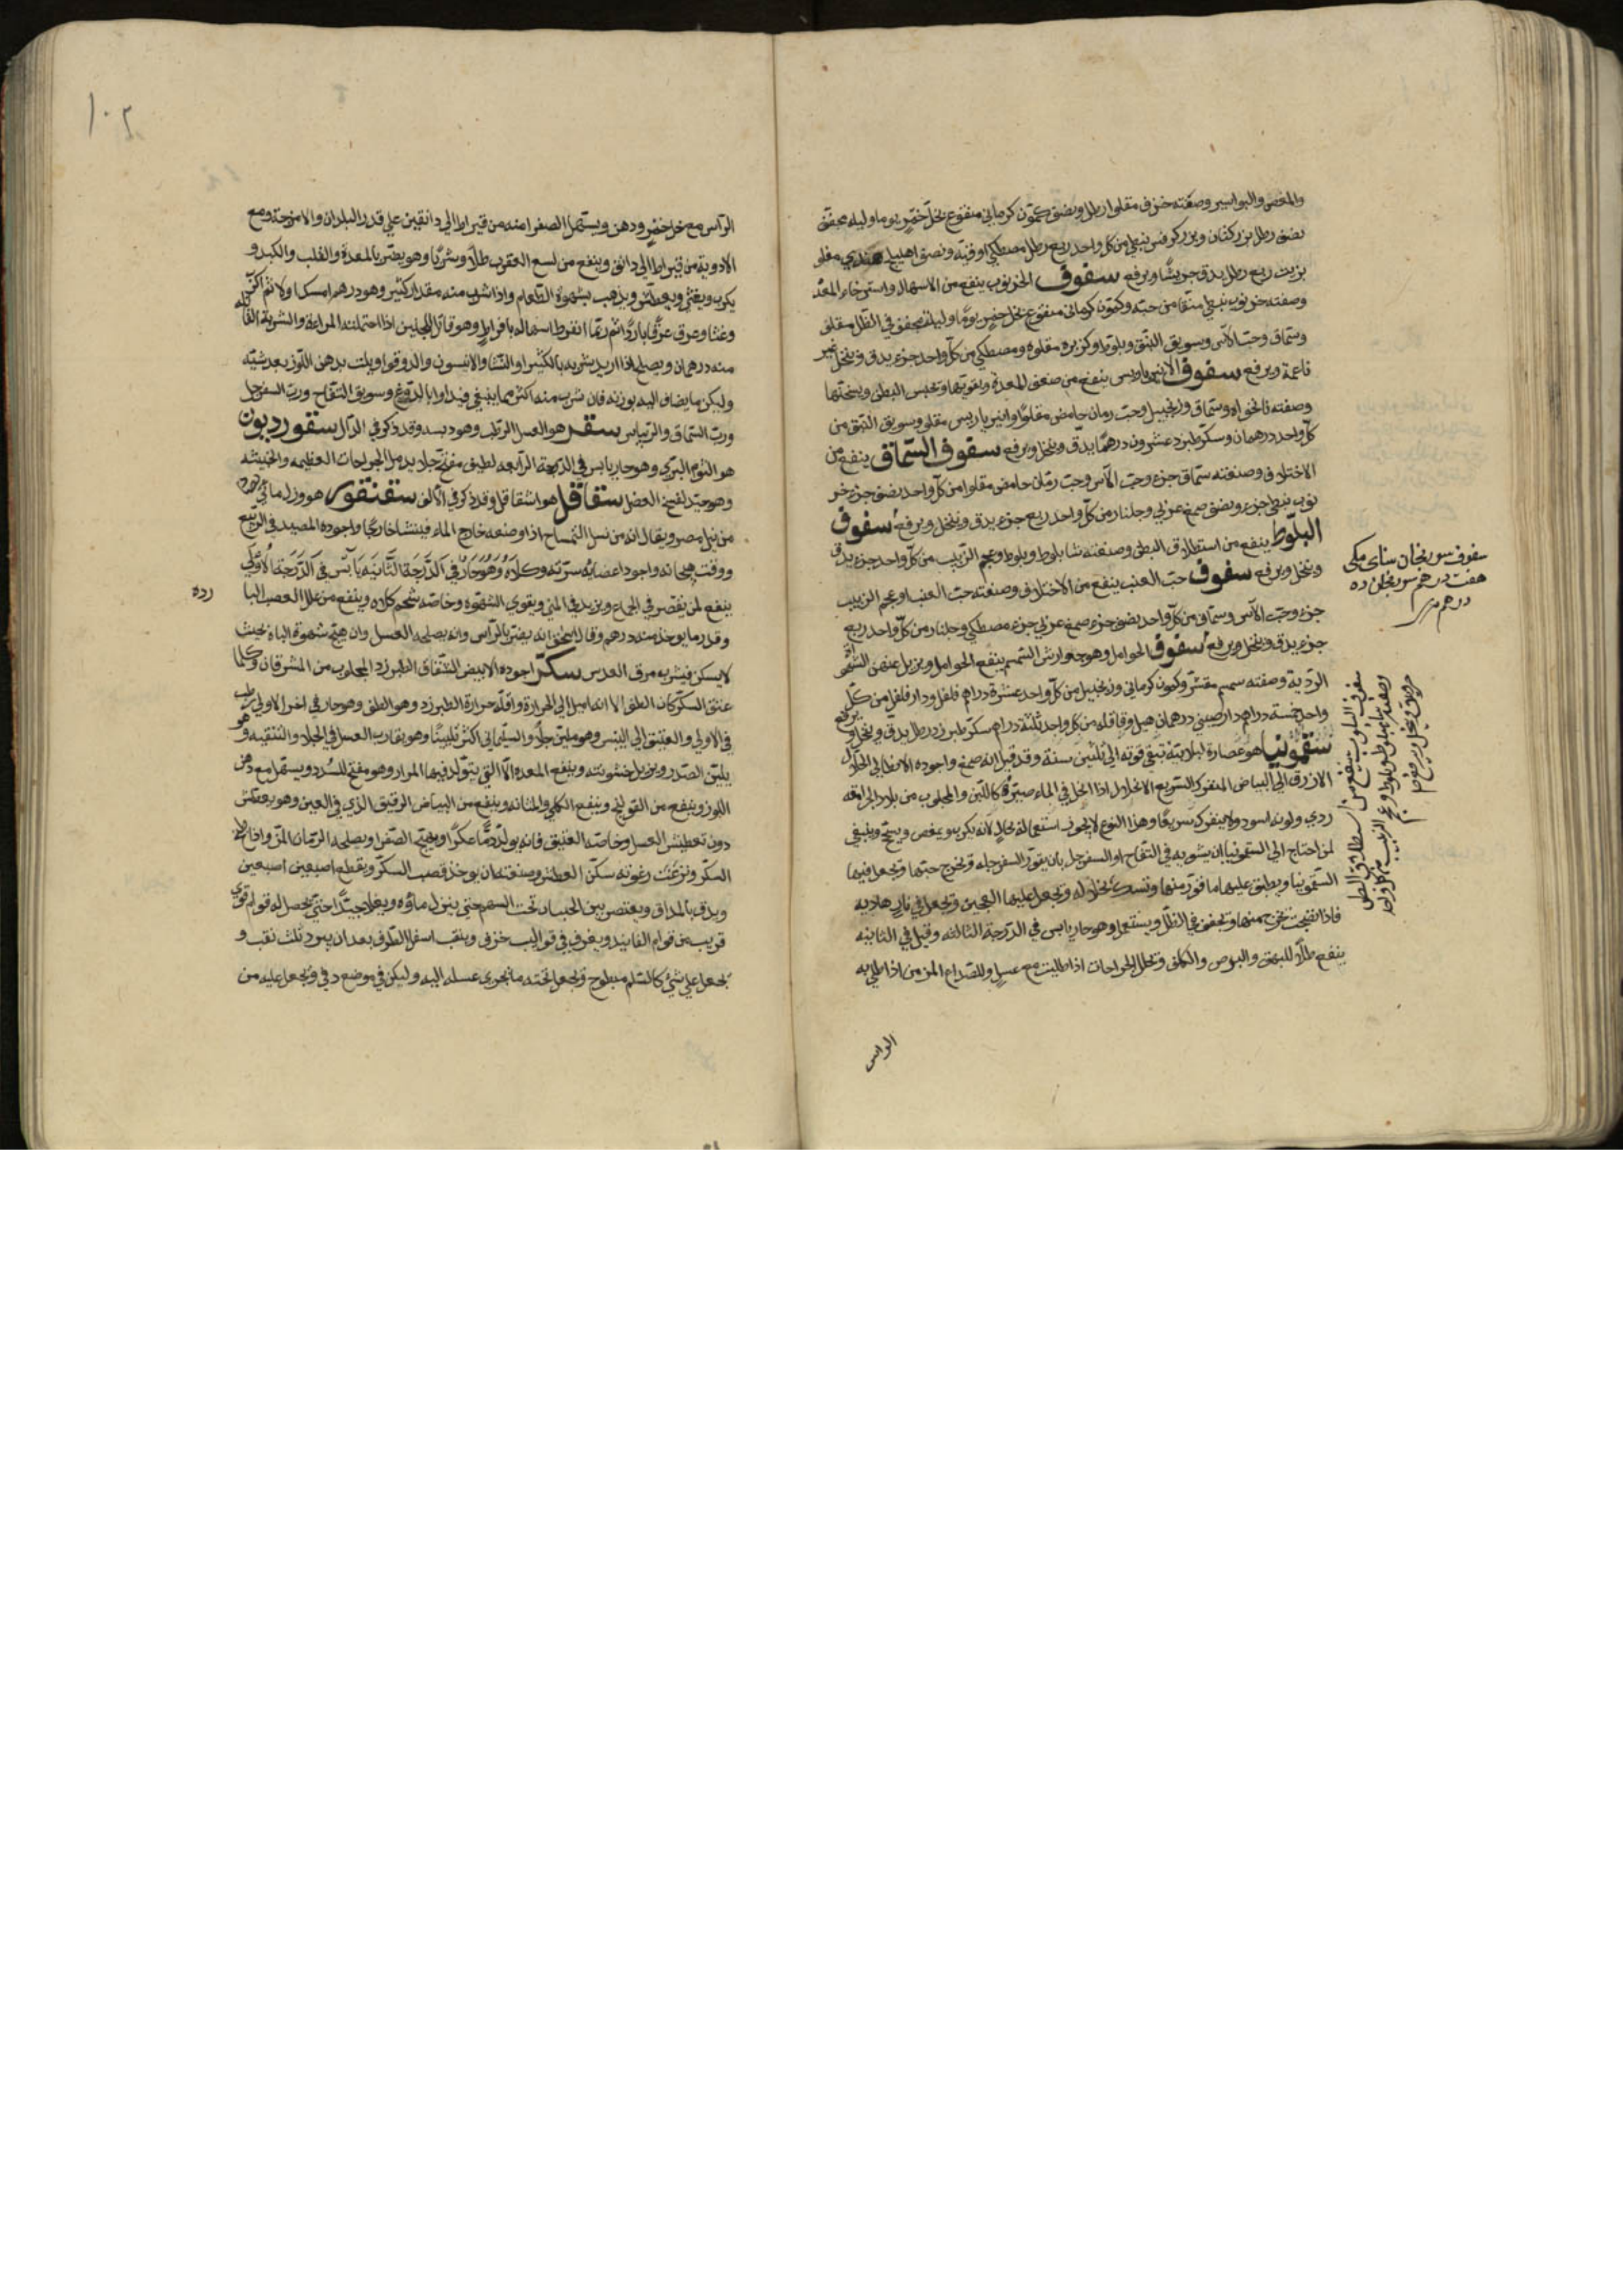 والمغص والبواسير وصفته خرف مقلوا رطل ونصف كمّون كرماني منقوع بخلّ خمر يوما وليله مجفف
نصف رطل بزر كتان وبزر كرفس نبطي من كل واحد ربع رطل مصطكي اوقيّة ونصف اهليلج هندي مقلو
بزيت ربع رطل يدق جريشًا ويرفع سفوف الخرنوب ينفع من الاسهال واسترخاء المعدة
وصفته خرنوب نبطي منقا من حبّه وكمّون كرماني منقوع بخل خمر يومًا وليلة مجفف في الظل مقلى
وسمّاق وحبّ الآس وسويق النبق وبلوط وكزبره مقلوه ومصطكي من كلّ واحد جزء يدق وينخل غير
ناعمة ويرفع سفوف الانبرباريس ينفع من ضعف المعدة ويقويها ويحبس البطن ويسخنها
وصفته نانخواه وسمّاق وزنجبيل وحبّ رمان حامض مقلوًا وانبرباريس مقلى وسويق النبق من
كلّ واحد درهمان وسكّر طبرزد عشرون درهمًا يدقّ وينخل ويرفع سفوف السّماق ينفع من
الاختلاف وصفته سمّاق جزء وحبّ الآس وحبّ رمّان حامض مقلوا من كلّ واحد نصف جزء خر
نوب نبطي جزء ونصف صمغ عربي وجلنار من كلّ واحد ربع جزء يدق وينخل ويرفع سفوف
البلّوط ينفع من استطلاق البطن وصفته شابلوط وبلوط وعجم الزبيب من كلّ واحد جزء يدق
وينخل ويرفع سفوف حبّ العنب ينفع من الاختلاف وصفته حبّ العنب او عجم الزبيب
جزء وحبّ الآس وسمّاق من كلّ واحد نصف جزء صمغ عربي جزء مصطكي وجلنار من كلّ واحد ربع
جزء يدق وينخل ويرفع سفوف الحوامل وهو جوارش السمسم ينفع الحوامل ويزيل عنهن الشهوة
الرديّة وصفته سمسم مقشّر وكمون كرماني وزنجبيل من كلّ واحد عشرة دراهم فلفل ودار فلفل من كلّ
واحد خمسة دراهم دارصيني درهمان هيل وقاقله من كل واحد ثلثة دراهم سكّر طبرزد رطل يدق وينخل ويرفع
سقمونيا هو عصارة لبلابيّة تبقي قوته الي ثلثين سنة وقد قيل انه صمغ واجوده الانطاكي الخلال
الازرق الي البياض المتفرك السّريع الانحلال اذا انحل في الماء صيّره كاللبن والمجلوب من بلاد الجرامقه
ردي ولونه اسود ولا يتفرك سريعًا وهذا النوع لا يجوز استعماله بحالٍ لانه يكرب ويمغص ويسحّج وينبغي
لمن احتاج الي السقمونيا ان يشويه في التفاح او السفرجل بان يقوّر السفرجله وتخرج حبّها ويجعل فيها
السّقمونيا ويطبق عليها ما قوّر منها وتسدّ بخلاله ويجعل عليها العجين ويجعل في نار هاديه
فاذا نضجت تخرج منها وتجفف في الظلّ ويستعمل وهو حار يابس في الدّرجة الثالثه وقيل في الثانيه
ينفع طلآء للبهق والبرص والكلف ويحلل الجراحات اذا طليت مع عسل وللصّداع المزمن اذا طلي به
الراس
سفوف سورنجان سناى مكى
هفت درهم سورنجان ده
درهم
سفوف البلوط ينفع من استطلاق البطن
وصفته شابلوط بلوط وعجم الزبيب من كل واحد
جزء يدق وينخل ويرفع
١٠٢
الرّاس مع خل خمرٍ ودهن ويستعمل الصفرا منه من قيراط الي دانقين علي قدر البلدان والامزجة ومع
الادوية من قيراط الي دانق وينفع من لسع العقرب طلاءً وشربًا وهو يضرّ بالمعدة والقلب والكبد و
يكرب ويغثي ويعطّش ويذهب بشهوة الطّعام واذا شرب منه مقدار كثير وهو درهم امسك اولا ثم اكرب
وغثا وعرق عرقًا باردًا ثم ربّما افرط اسهاله بافراطٍ وهو قاتل للجنين اذا احتملته المراة والشربة القاتله
منه درهمان ويصلحه اذا اريد شربه بالكثيرا والنّشا والانيسون والدوقوا ويلت بدهن اللّوز بعد شيّه
وليكن ما يضاف اليه بوزنه فان شرب منه اكثر مما ينبغي فيداوا بالدّوغ وسويق التفّاح وربّ السفرجل
وربّ السّماق والريباس سقر هو العسل الرّطب وهو دبسه وقد ذكر في الدّال سقورديون
هو الثوم البرّي وهو حار يابس في الدّرجة الرّابعه لطيف مفتّح جلاء يدمل الجراحات العظيمه والخبيثه
وهو جيّد لفسخ العضل سقاقل هو اشقاقل وقد ذكر في الالف سقنقور هو ورل مائي يصاد
من نيل مصر ويقال انه من نسل التّمساح اذا وضعه خارج الماء فينشا خارجًا واجوده المصيد في الرّبيع
ووقت هيجانه واجود اعضائه سرّته وكلاه وهو حارّ في الدّرجة الثّانيه يابس في الدّرجة الاولي
ينفع لمن يقصر في الجماع ويزيد في المني ويقوي الشهوة وخاصّه شحم كلاه وينفع من علل العصب البا
رده
وقدر ما يوخذ منه درهم وقال اسحق انّه يضرّ بالرّاس وانه يصلحه العسل وان هيّج شهوة الباه بحيث
لا يسكن فيشرب مرق العدس سكّر اجوده الابيض الشّفاف الطبرزد المجلوب من المشرقان وكلّما
عتق السكّر كان الطف الا انه اميل الي الحرارة واقلّه حرارة الطبرزد وهو الطف وهو حار في اخر الاولي رطب
في الاولي والعتيق الي اليبس وهو مليّن جلّاء والسّليماني اكثر تليينًا وهو يقارب العسل في الجلاء والتنقيه وهو
يليّن الصّدر ويزيل خشونته وينفع المعده الّا الّتي يتولّد فيها المرار وهو مفتّح للسُّدد ويسهّل مع دهن
اللّوز وينفع من القولنج وينفع الكلي والمثانه وينفع من البياض الرقيق الذي في العين وهو يعطّش
دون تعطيش العسل وخاصّه العتيق فانه يولّد دمًا عكرًا ويهيّج الصّفرا ويصلحه الرّمان المزّ واذا طبخ
السكّر ونزعت رغوته سكّن العطش وصنعته ان يوخذ قصب السكّر ويقطع اصبعين اصبعين
ويدق بالمداق ويعتصر بين الخشبات تحت السهم حتي ينزل ماؤه ويغلا جيّدًا حتي يحصل له قوام قوي
قريب من قوام الفانيد ويغرف في قواليب خزف ويثقب اسفل الظّرف بعد ان يبرد ثلث ثقب و
يجعل علي شي كالسّلّم مبطوح ويجعل تحته ما يجري عسله اليه وليكن في موضع دفي ويجعل عليه من